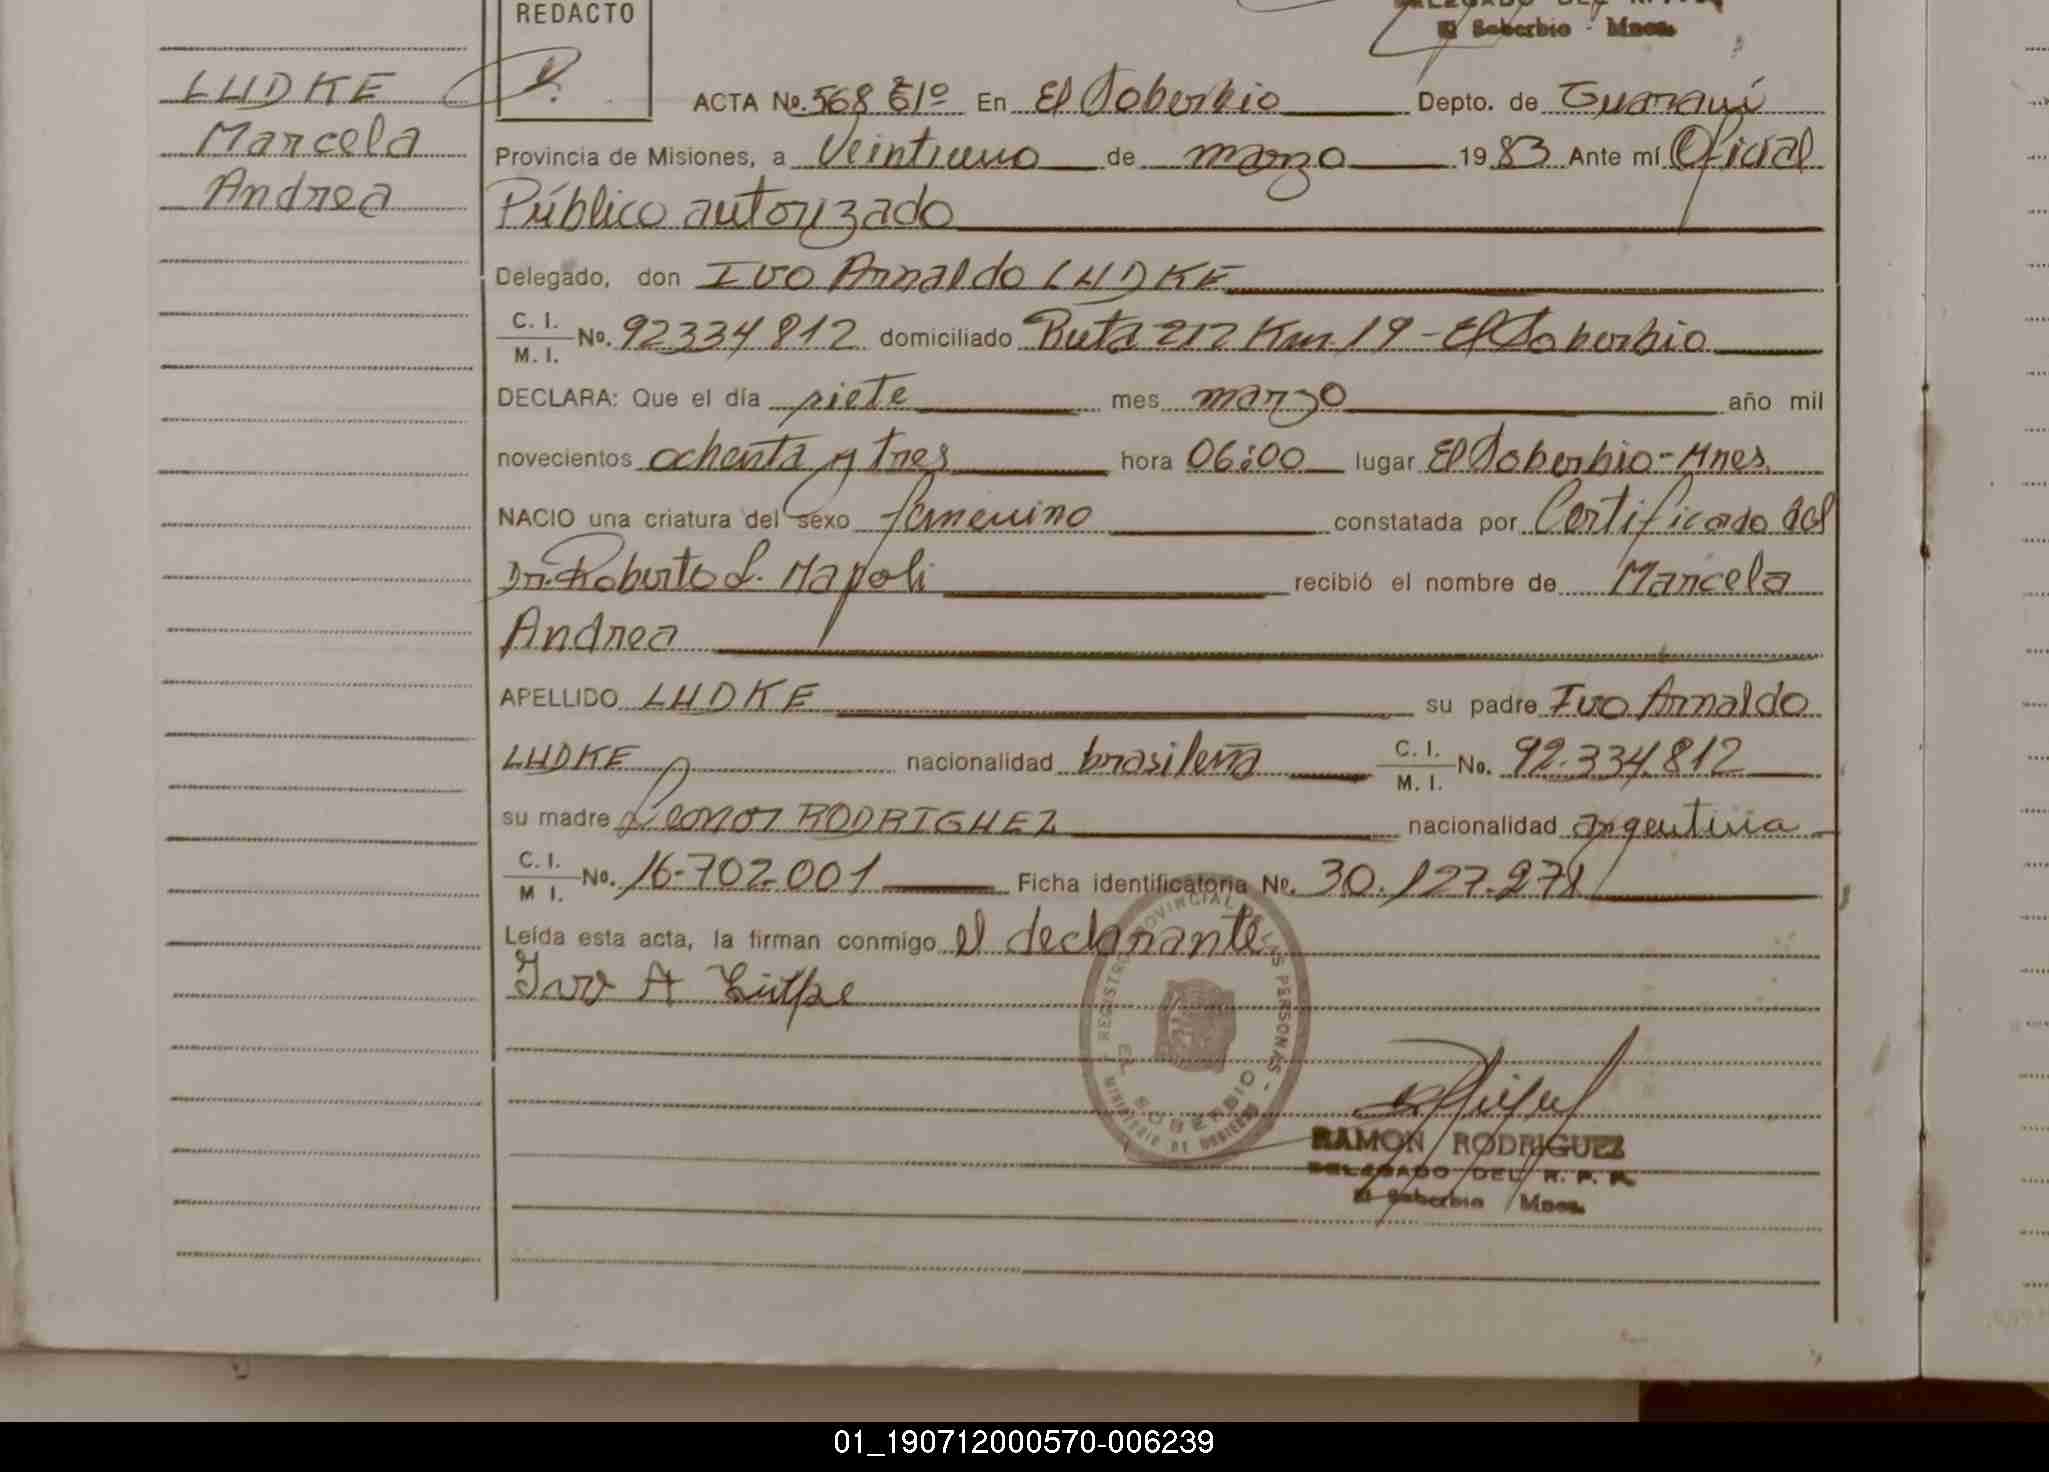 REDACTO
DELEGADO DEL R. P. P.
El Soberbio - Mnes.
LUDKE
Marcela
Andrea
ACTA No. 568 61º En El Soberbio Depto. de Guaraní
Provincia de Misiones, a Veintiuno de marzo 1983 Ante mí Oficial
Público autorizado
Delegado, don Ivo Arnaldo LUDKE
C. I. M. I. No. 92334812 domiciliado Ruta 212 Km. 19 - El Soberbio
DECLARA: Que el día siete mes marzo año mil
novecientos ochenta y tres hora 06:00 lugar El Soberbio - Mnes
NACIO una criatura del sexo femenino constatada por Certificado del
Dr. Roberto L. Napoli recibió el nombre de Marcela
Andrea
APELLIDO LUDKE su padre Ivo Arnaldo
LUDKE nacionalidad brasileña C. I. M. I. No. 92.334.812
su madre Leonor RODRIGUEZ nacionalidad argentina
C. I. M I. No. 16.702.001 Ficha identificatoria No. 30.127.278
Leída esta acta, la firman conmigo el declarante
Ivo A Lütke
REGISTRO PROVINCIAL DE LAS PERSONAS - MINISTERIO DE GOBIERNO
EL SOBERBIO
RAMON RODRIGUEZ
DELEGADO DEL R. P. P.
El Soberbio Mnes.
01_190712000570-006239